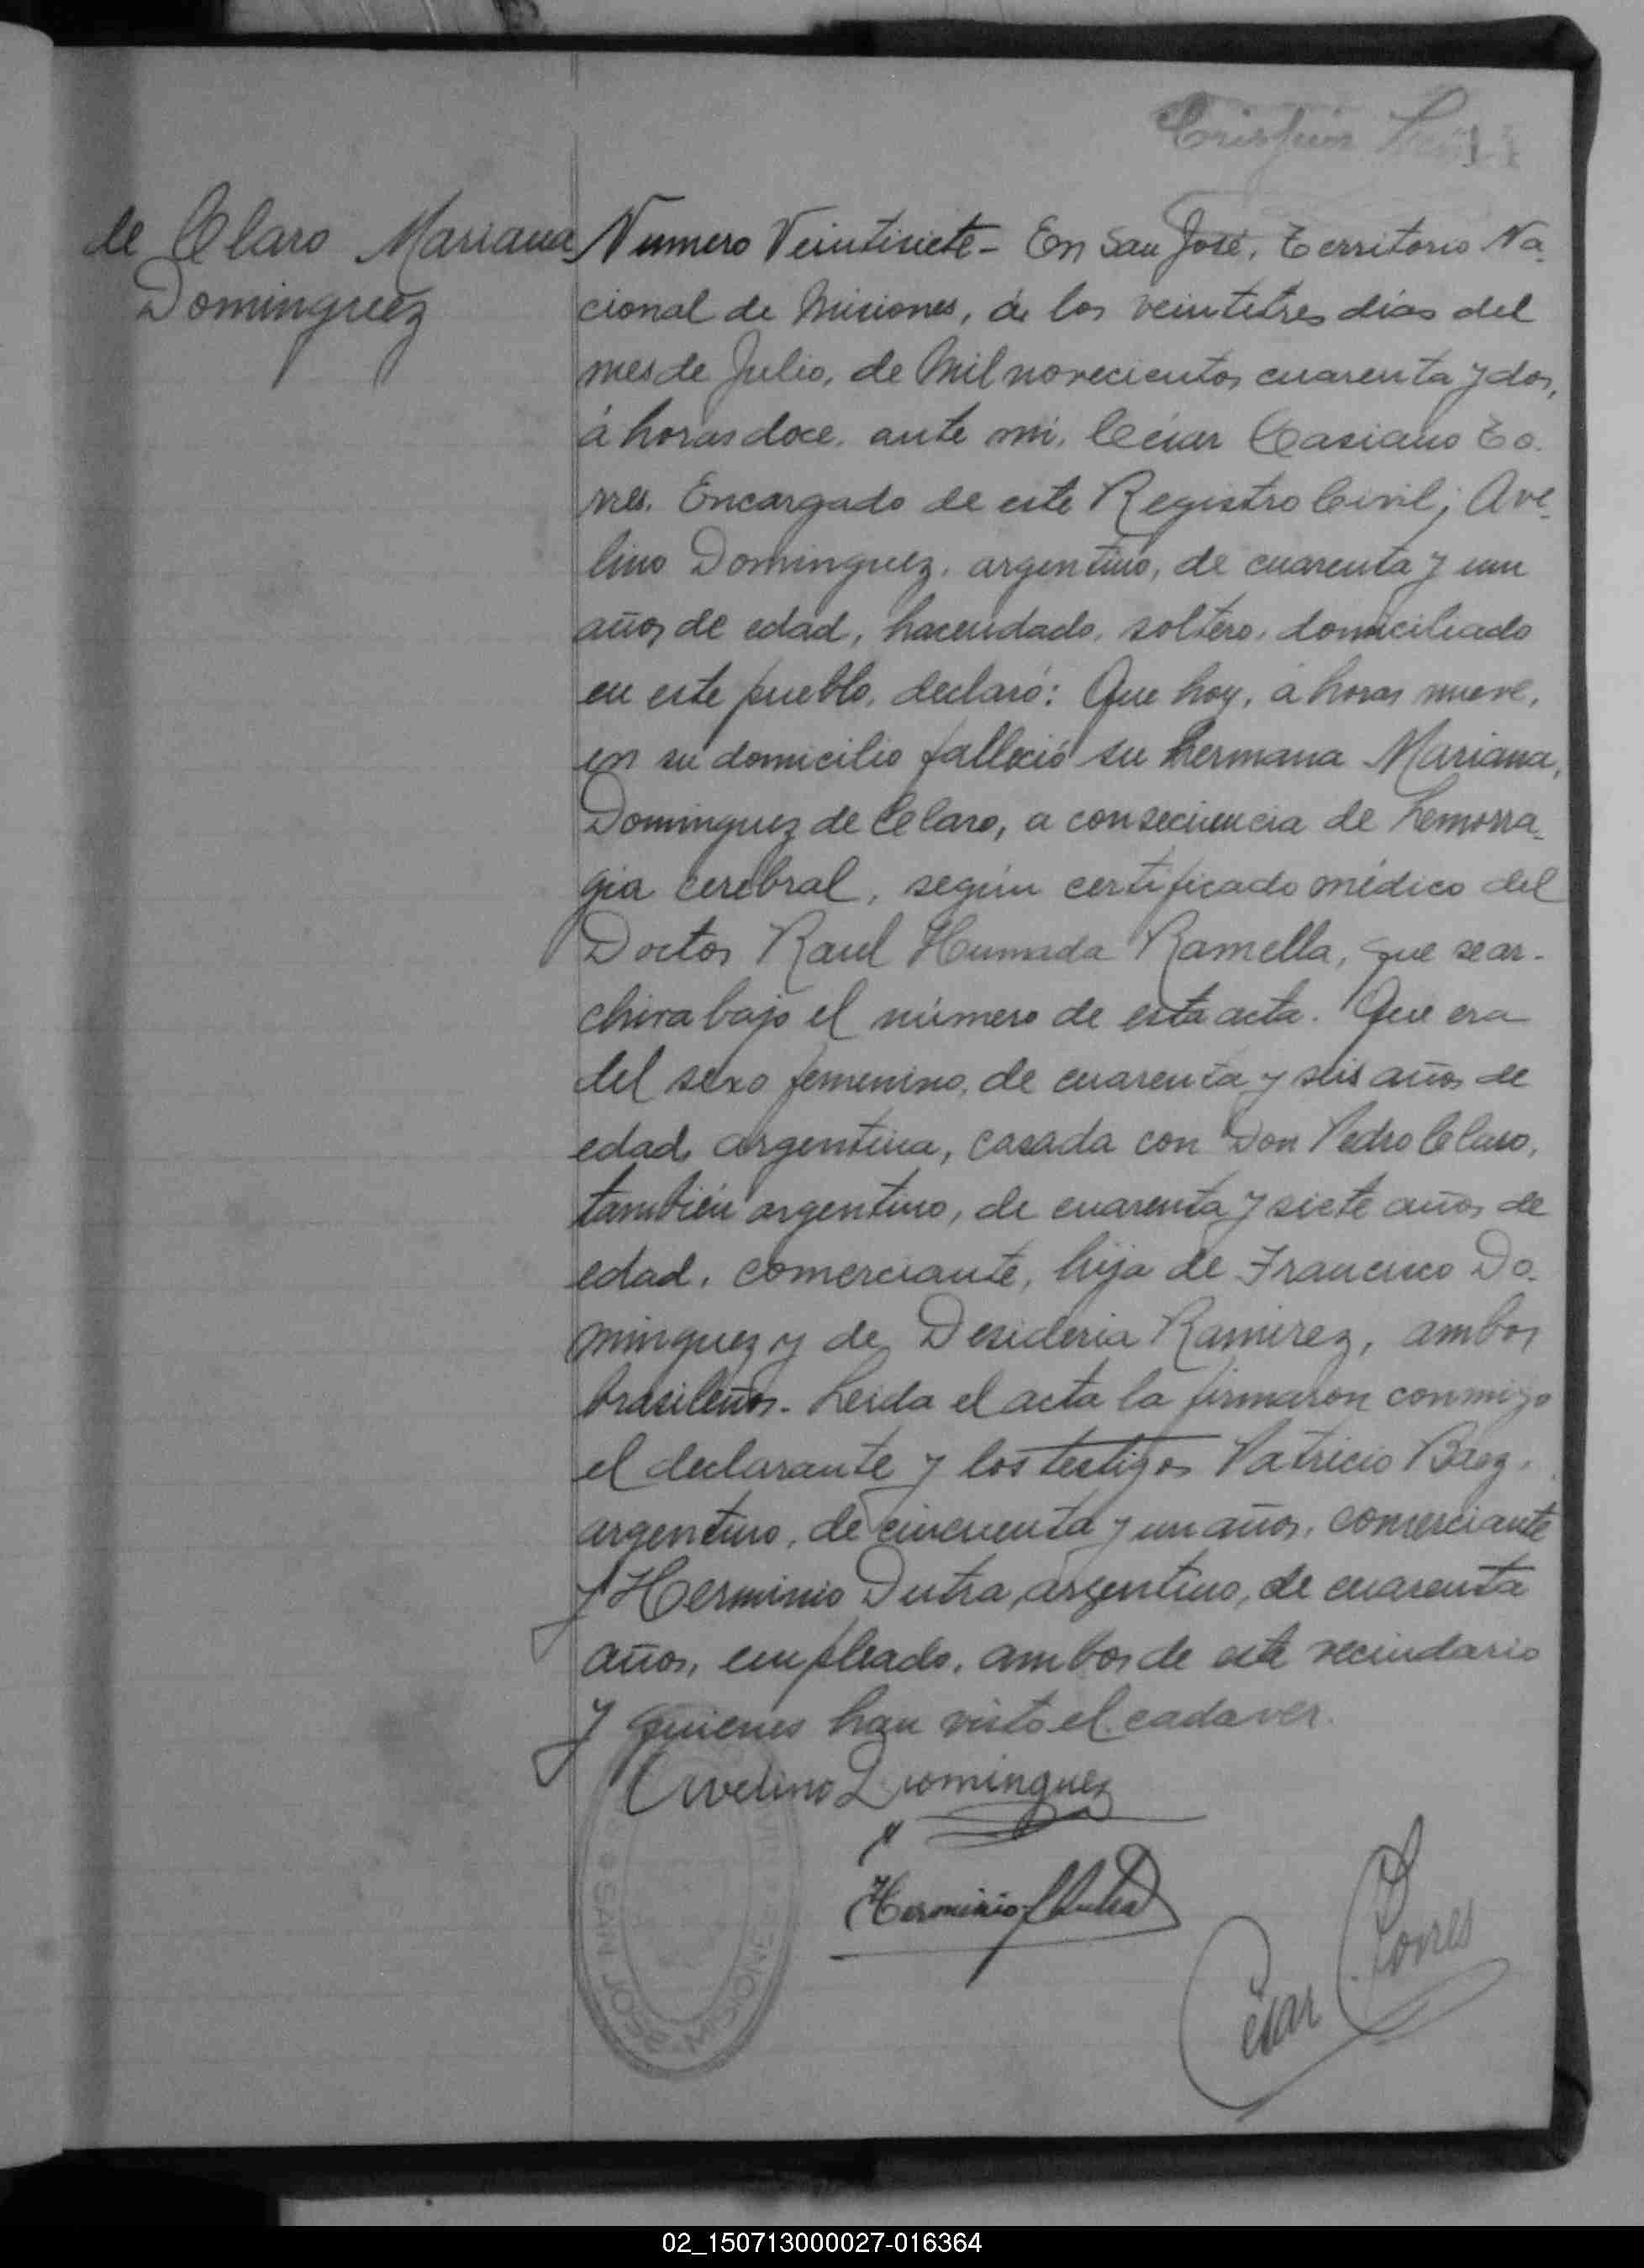 de Claro Mariana
Dominguez
Numero Veintisiete - En San José, Territorio Na-
cional de Misiones, á los veintitres dias del
mes de Julio, de Mil novecientos cuarenta y dos,
á horas doce, ante mi, César Casiano To-
rres, Encargado de este Registro Civil; Ave-
lino Dominguez, argentino, de cuarenta y un
años de edad, hacendado, soltero, domiciliado
en este pueblo, declaró: Que hoy, á horas nueve,
en su domicilio falleció su hermana Mariana,
Dominguez de Claro, a consecuencia de hemorra-
gia cerebral, según certificado médico del
Doctor Raul Humada Ramella, que se ar-
chiva bajo el número de esta acta. Que era
del sexo femenino, de cuarenta y seis años de
edad, argentina, casada con Don Pedro Claro,
también argentino, de cuarenta y siete años de
edad, comerciante, hija de Francisco Do-
minguez y de Desideria Ramirez, ambos
brasileños. Leida el acta la firmaron conmigo
el declarante y los testigos Patricio Baez,
argentino, de cincuenta y un años, comerciante
y Herminio Dutra, argentino, de cuarenta
años, empleado, ambos de este vecindario
y quienes han visto el cadaver.
Avelino Dominguez
Herminio Dutra
César Torres
SAN JOSE MISIONES
02_150713000027-016364